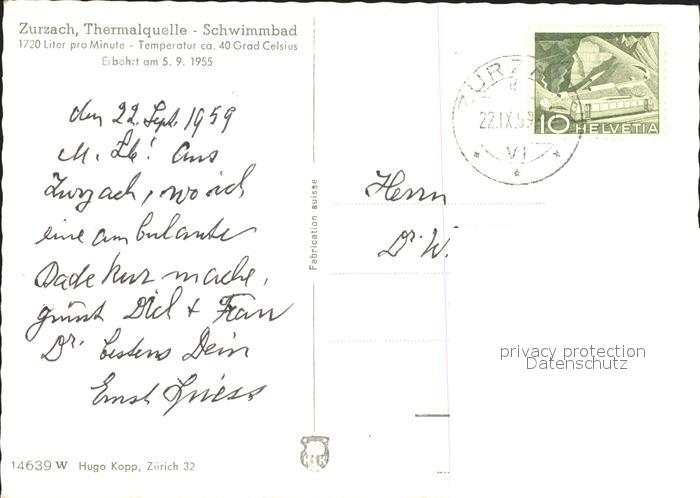 Zurzach, Thermalquelle - Schwimmbad
1720 Liter pro Minute - Temperatur ca. 40 Grad Celsius
Erbohrt am 5. 9. 1955
den 22. Sept. 1959
M. Lb! Aus
Zurzach, wo ich
eine ambulante
Badekur mache,
grüsst Dich + Frau
Dr. bestens Dein
Ernst
Fabrication suisse
Herrn
Dr. W.
ZURZACH
22.IX.59
VI
10 HELVETIA
privacy protection
Datenschutz
14639 W Hugo Kopp, Zürich 32